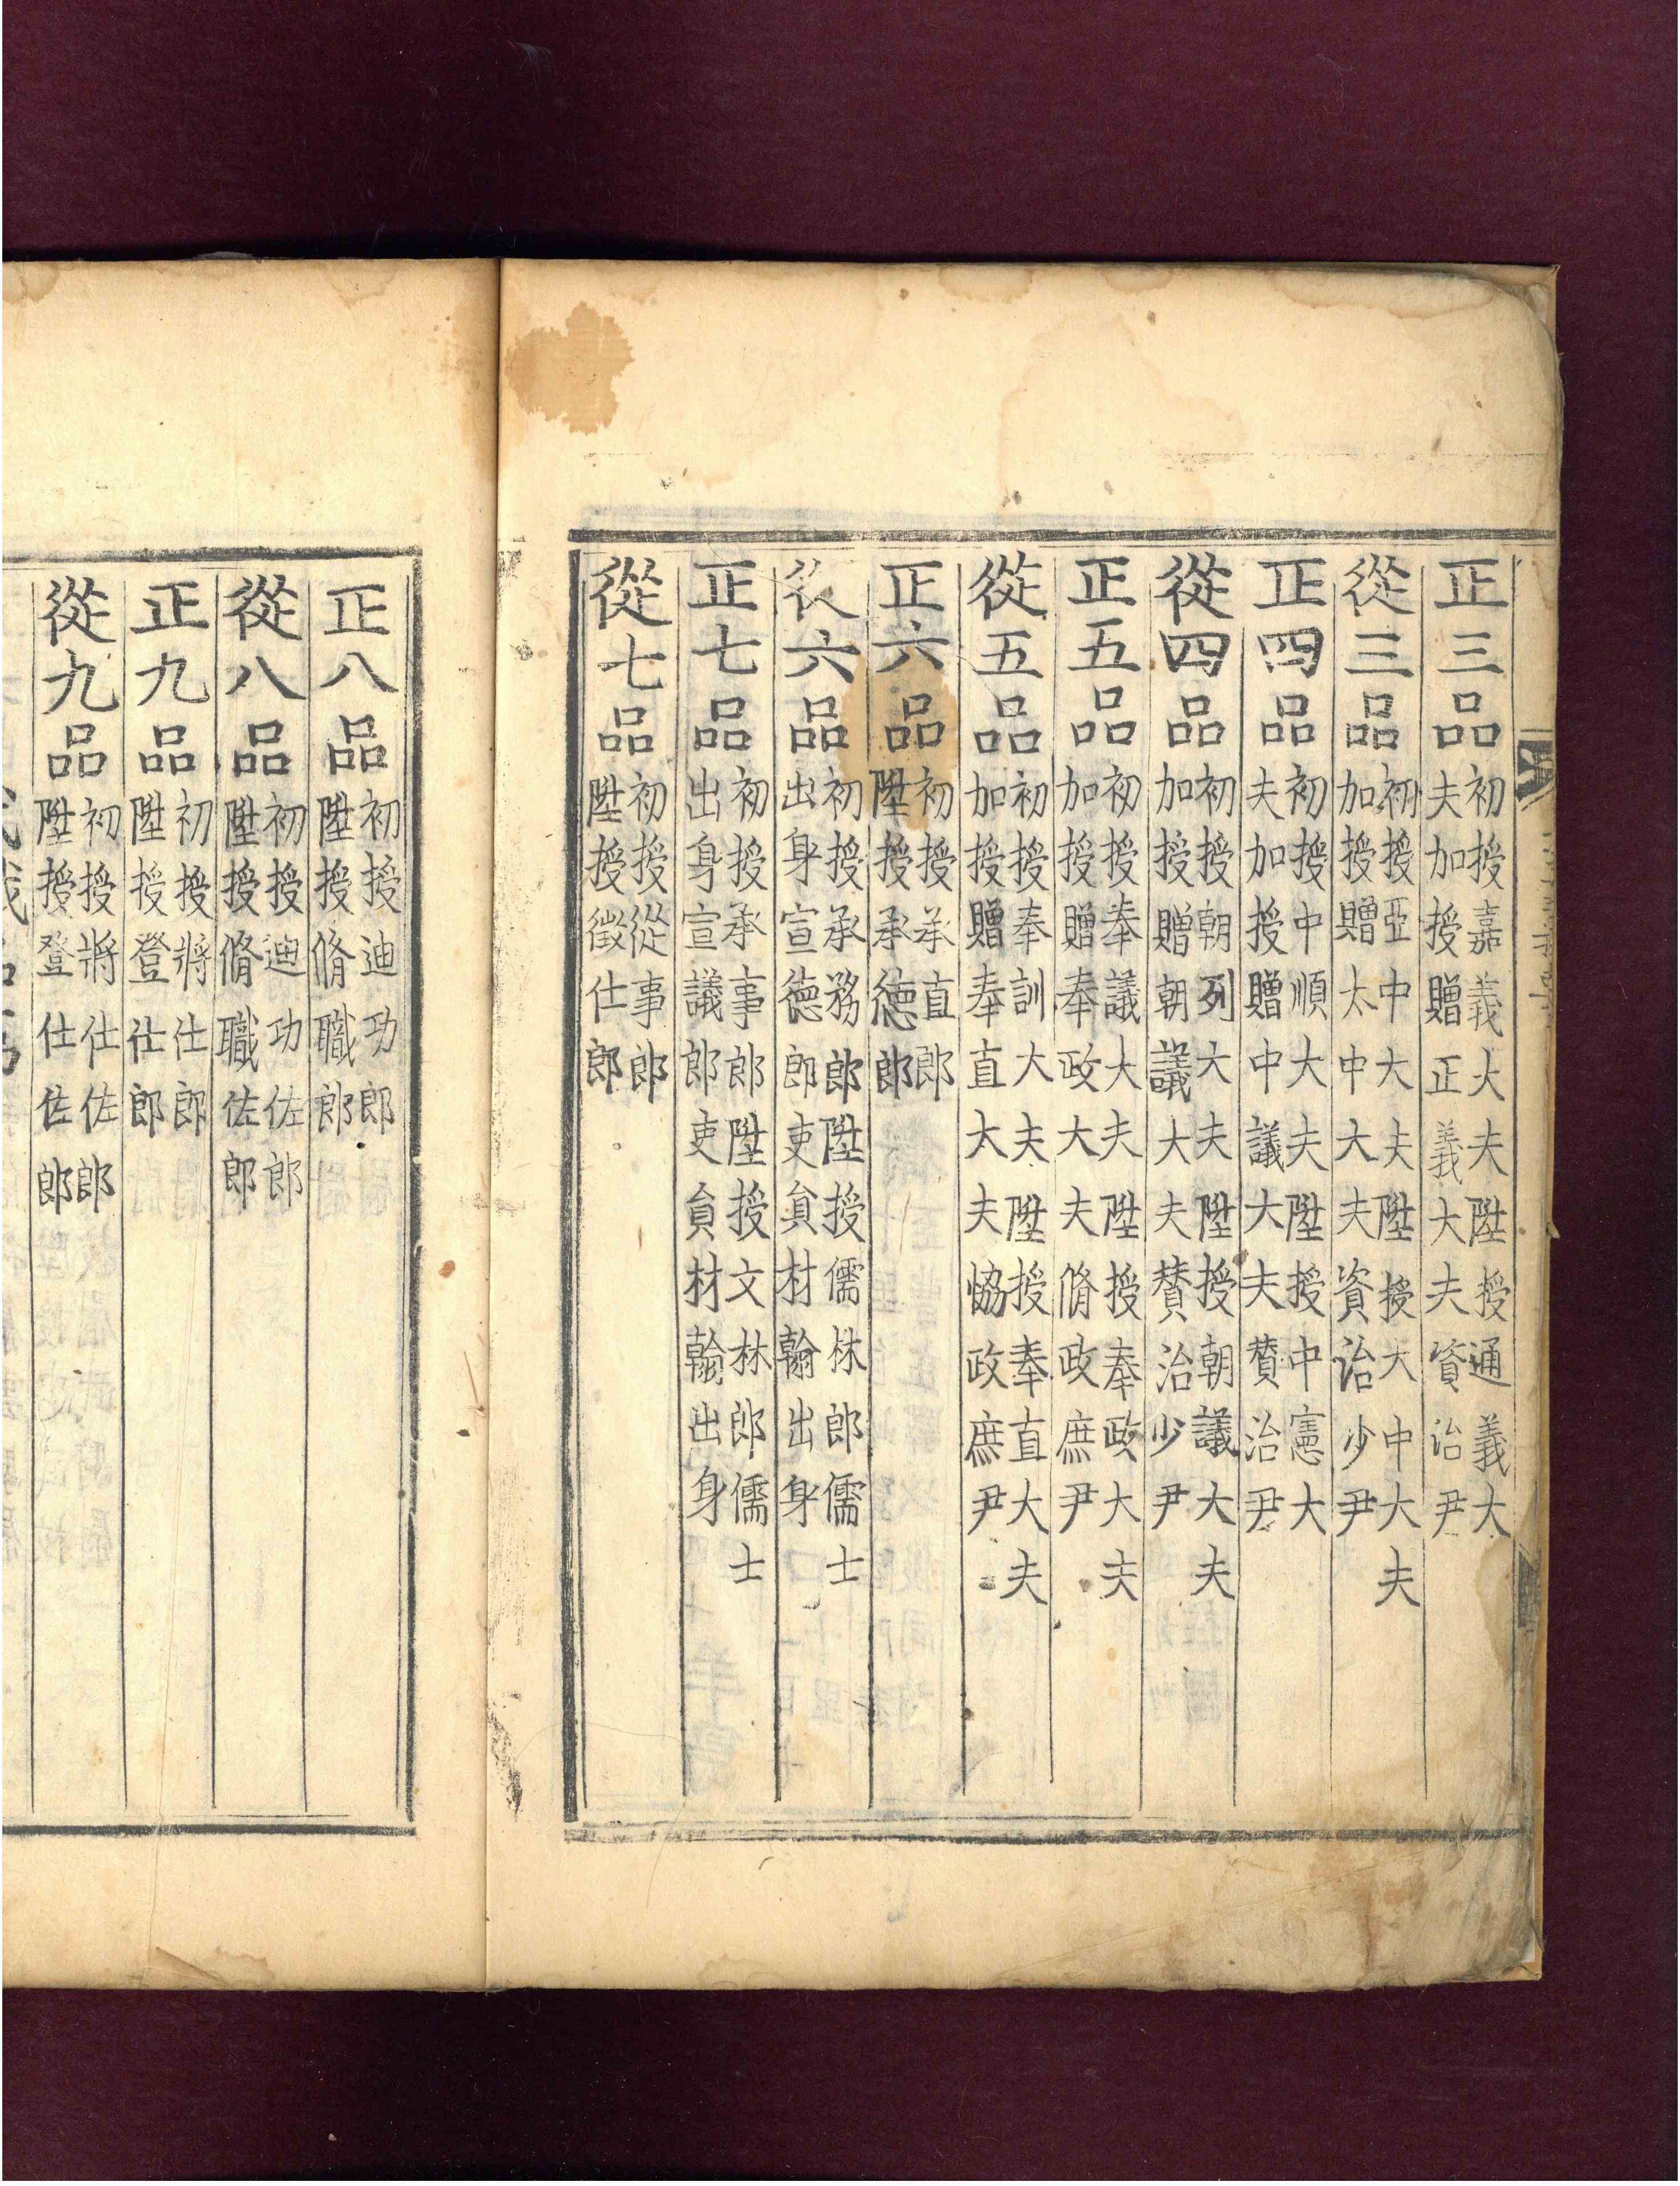 正三品初授嘉義大夫陞授通義大
夫加授贈正義大夫資治尹
從三品初授亞中大夫陞授大中大夫
加授贈太中大夫資治少尹
正四品初授中順大夫陞授中憲大
夫加授贈中議大夫賛治尹
從四品初授朝列大夫陞授朝議大夫
加授贈朝議大夫賛治少尹
正五品初授奉議大夫陞授奉政大夫
加授贈奉政大夫脩政庶尹
從五品初授奉訓大夫陞授奉直大夫
加授贈奉直大夫恊政庶尹
正六品初授承直郎
陞授承德郎
從六品初授承務郎陞授儒林郎儒士
出身宣德郎吏員材翰出身
正七品初授承事郎陞授文林郎儒士
出身宣議郎吏員材翰出身
從七品初授從事郎
陞授徵仕郎
正八品初授迪功郎
陞授脩職郎
從八品初授迪功佐郎
陞授脩職佐郎
正九品初授將仕郎
陞授登仕郎
從九品初授將仕佐郎
陞授登仕佐郎